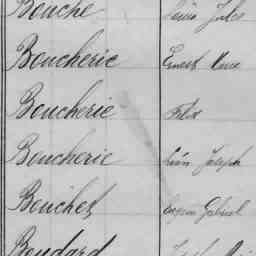 Bouche Jules
Boucherie Ernest
Boucherie Félix
Boucherie Léon Joseph
Bouchet Eugène Gabriel
Boudard